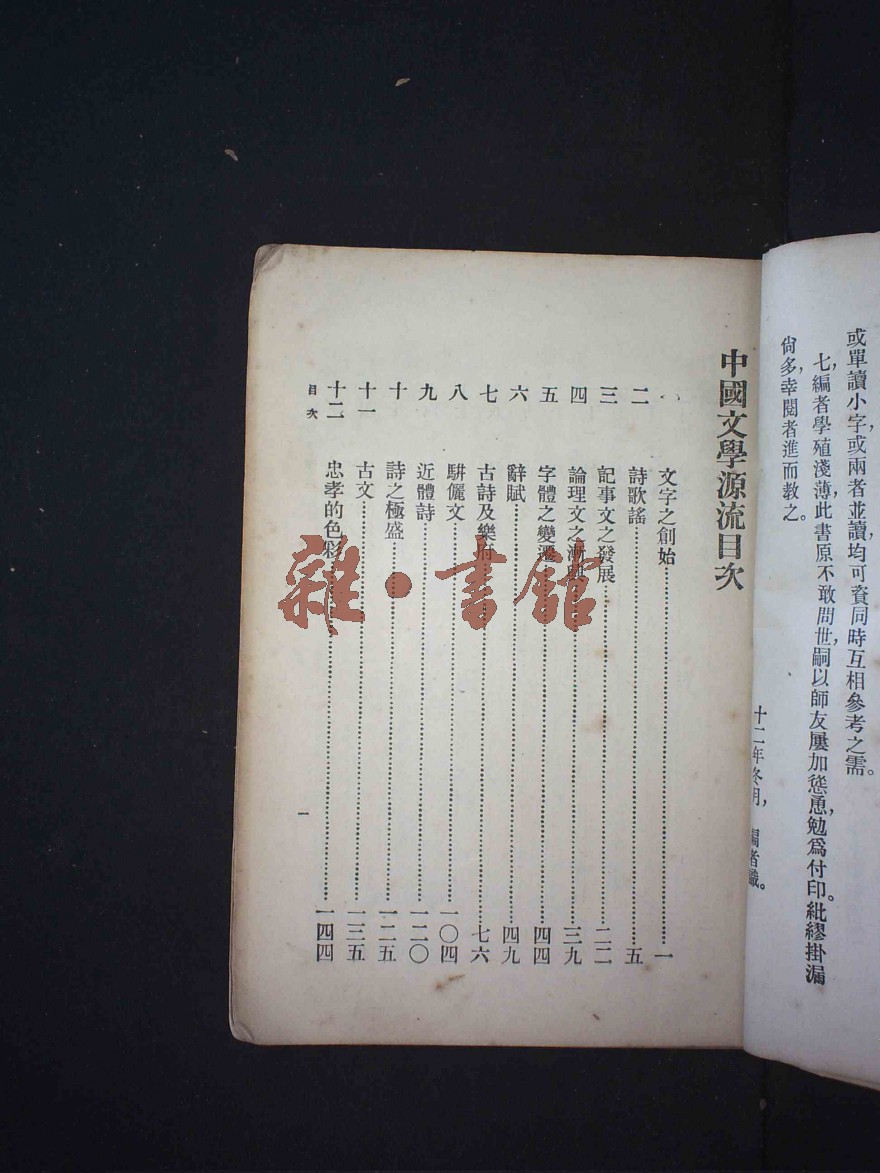 或單讀小字,或兩者並讀,均可資同時互相參考之需。
七,編者學殖淺薄,此書原不敢問世,嗣以師友屢加慫恿,勉爲付印。紕繆掛漏
尙多,幸閱者進而教之。
十二年冬月,編者識。
中國文學源流目次
文字之創始……一
二 詩歌謠……五
三 記事文之發展……二二
四 論理文之漸興……三九
五 字體之變遷……四四
六 辭賦……四九
七 古詩及樂府……七六
八 駢儷文……一〇四
九 近體詩……一二〇
十 詩之極盛……一二五
十一 古文……一三五
十二 忠孝的色彩……一四四
目次
一
雜·書館